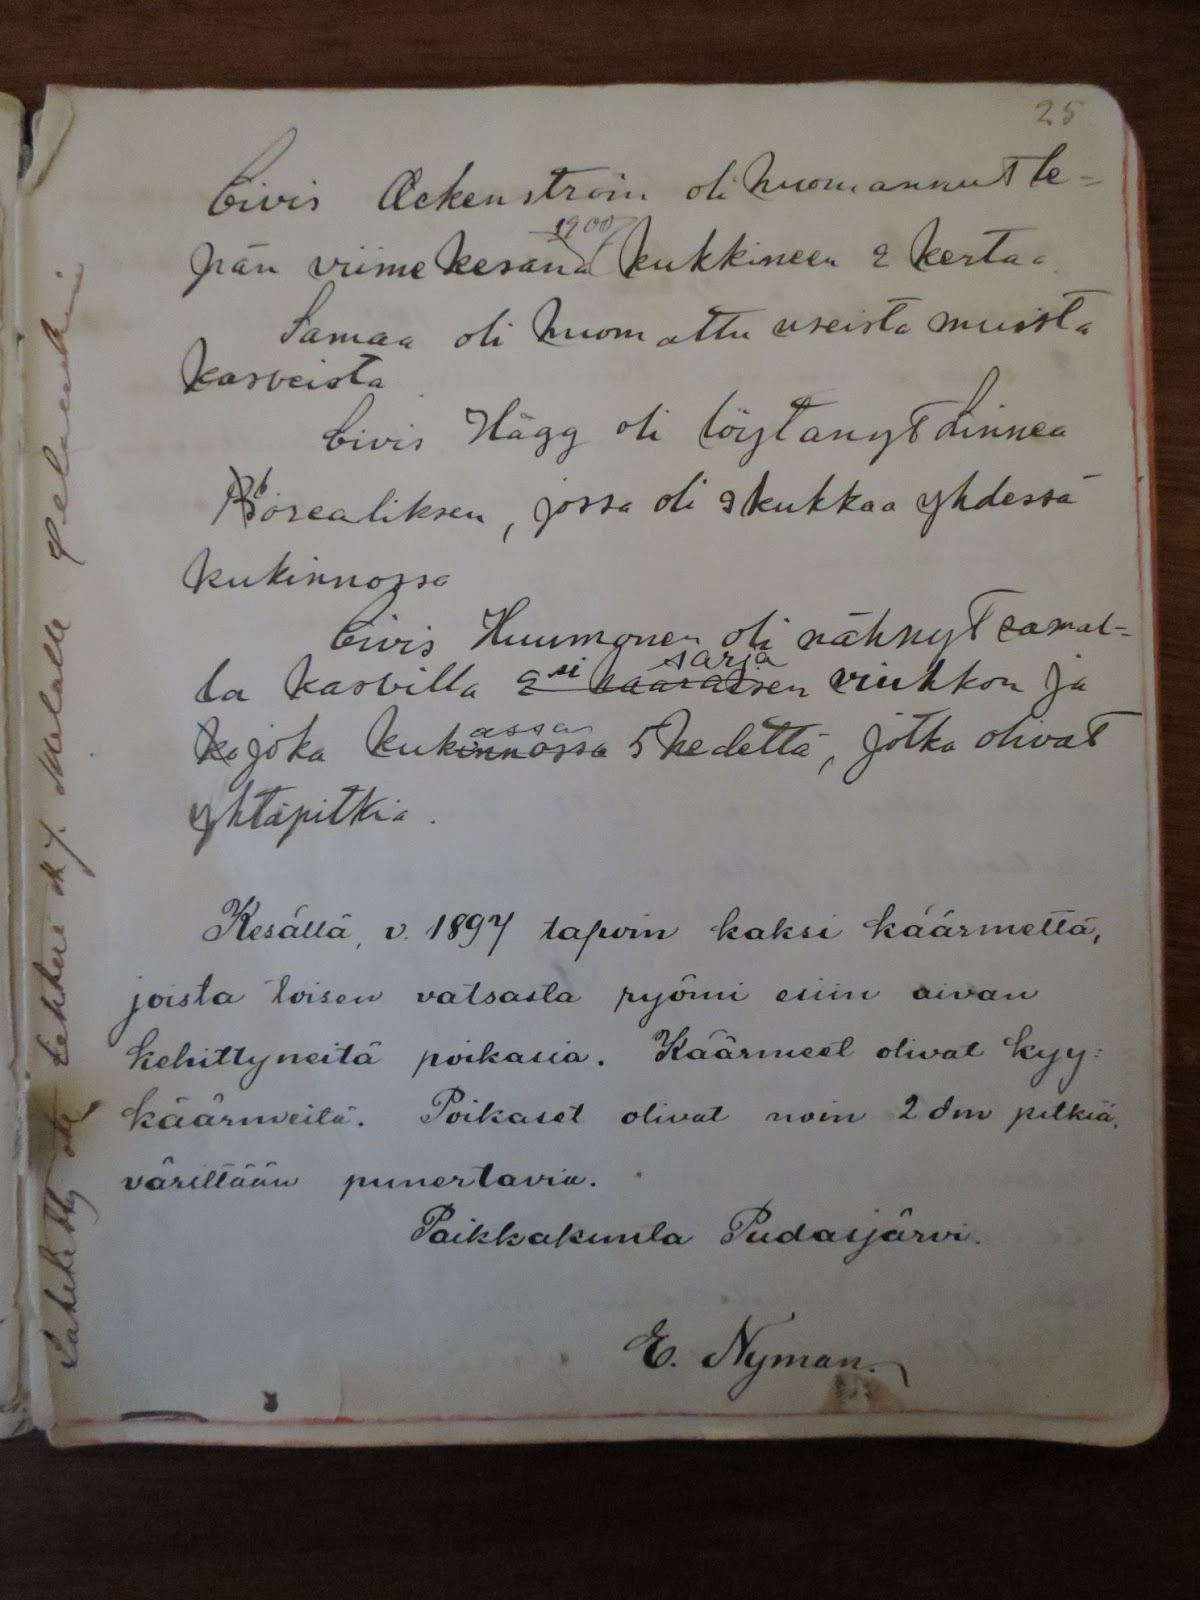 25
Civis Æckenström oli huomannut le-
pän viime kesänä 1900 kukkineen 2 kertaa
Samaa oli huomattu useista muista
kasveista
Civis Hägg oli löytänyt Linnea
Borealiksen, jossa oli 3 kukkaa yhdessä
kukinnossa
Civis Huumonen oli nähnyt samal-
la kasvilla 2si haaraisen sarja viuhkon ja
ka joka kukinnossa assa 5 hedettä, jotka olivat
yhtäpitkiä.
Kesällä, v. 1897 tapoin kaksi käärmettä,
joista toisen vatsasta ryömi esiin aivan
kehittyneitä poikasia. Käärmeet olivat kyy-
käärmeitä. Poikaset olivat noin 2 dm pitkiä,
väriltään punertavia.
Paikkakunta Pudasjärvi.
E. Nyman.